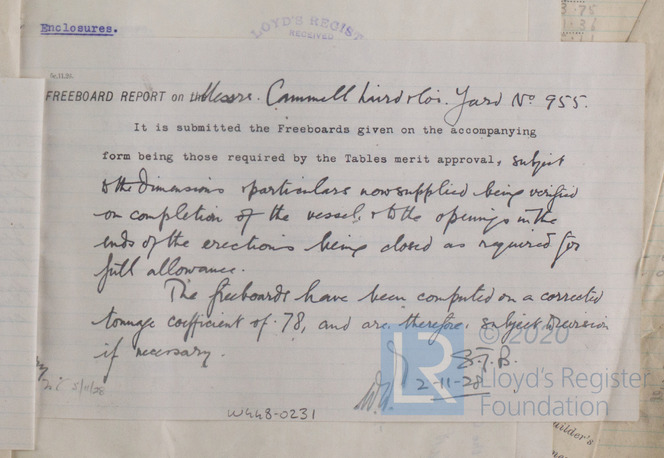 Enclosures.
LLOYD'S REGIST
RECEIVED
FREEBOARD REPORT on the Messrs. Cammell Laird & Co's. Yard No 955.
It is submitted the Freeboards given on the accompanying
form being those required by the Tables merit approval, subject
to the dimensions & particulars now supplied being verified
on completion of the vessel, & to the openings in the
ends of the erections being closed as required for
full allowance.
The freeboards have been computed on a corrected
tonnage coefficient of .78, and are, therefore, subject to revision
if necessary.
© 2020
LR
Lloyd's Register
Foundation
2-11-28
5/11/28
W448-0231
uilder's